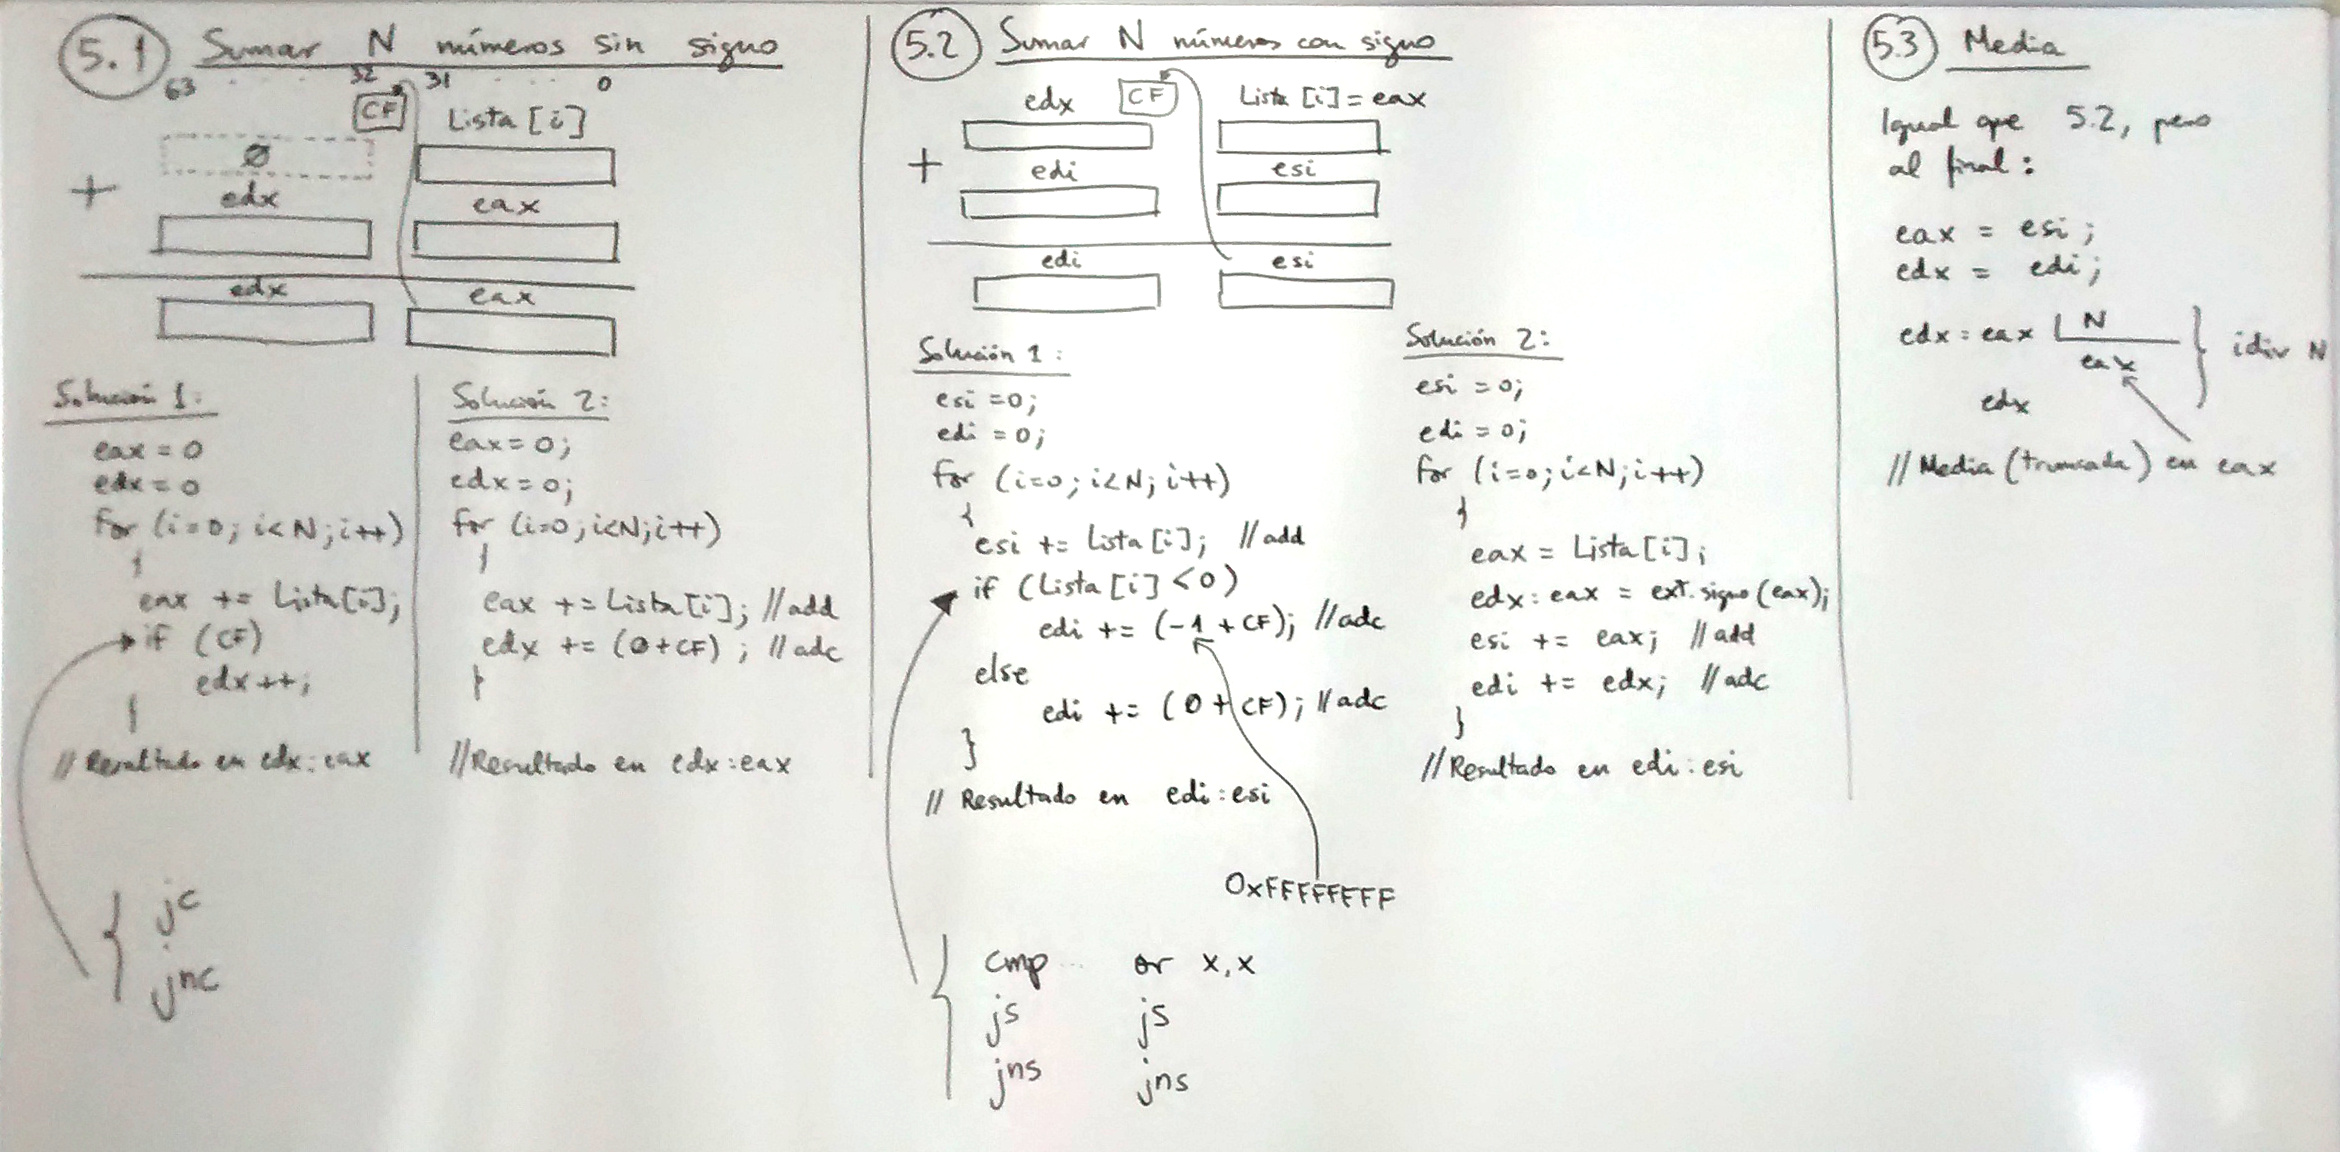 5.1 Sumar N números sin signo
63 . . . 32 31 . . . 0
CF Lista [i]
Ø
+ edx eax
edx eax
Solución 1:
eax = 0
edx = 0
for (i=0; i<N; i++)
{
eax += Lista[i];
if (CF)
edx++;
}
// Resultado en edx:eax
jc
jnc
Solución 2:
eax = 0;
edx = 0;
for (i=0; i<N; i++)
{
eax += Lista[i]; // add
edx += (0+CF); // adc
}
// Resultado en edx:eax
5.2 Sumar N números con signo
edx CF Lista [i] = eax
+ edi esi
edi esi
Solución 1:
esi = 0;
edi = 0;
for (i=0; i<N; i++)
{
esi += Lista[i]; // add
if (Lista [i] < 0)
edi += (-1 + CF); // adc
else
edi += (0 + CF); // adc
}
// Resultado en edi:esi
0xFFFFFFFF
cmp .. or x,x
js js
jns jns
Solución 2:
esi = 0;
edi = 0;
for (i=0; i<N; i++)
{
eax = Lista[i];
edx:eax = ext.signo(eax);
esi += eax; // add
edi += edx; // adc
}
// Resultado en edi:esi
5.3 Media
Igual que 5.2, pero
al final:
eax = esi;
edx = edi;
edx:eax N
eax } idiv N
edx
// Media (truncada) en eax